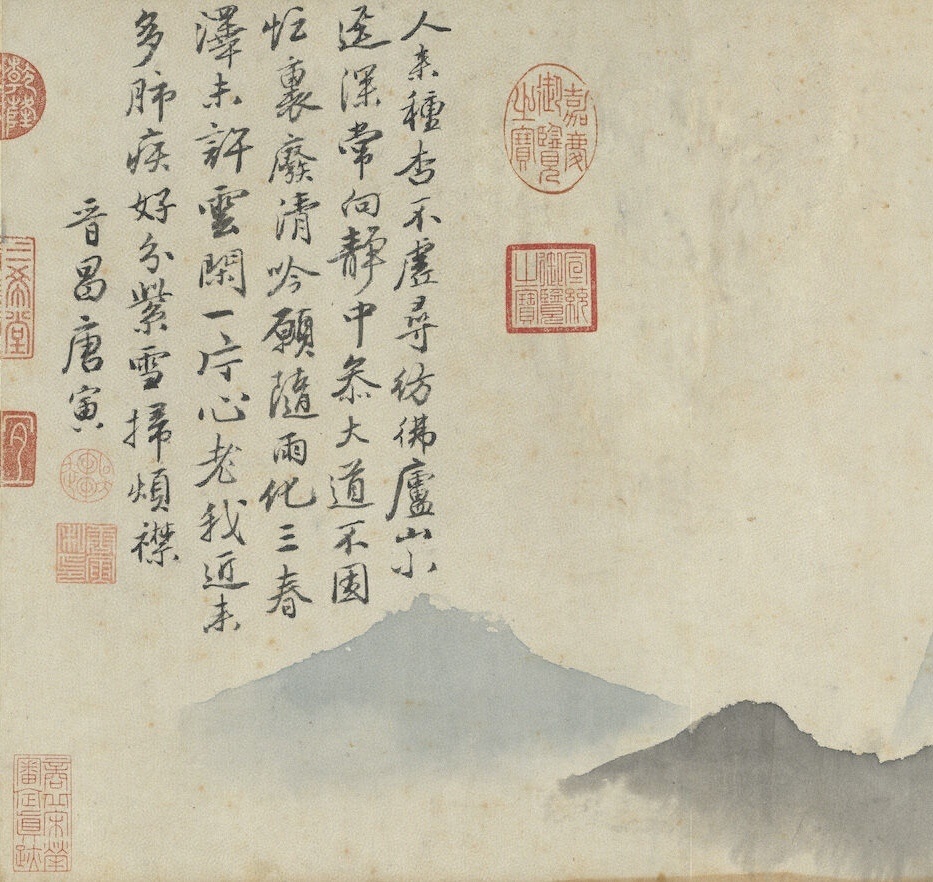 嘉慶御覽之寶
宣統御覽之寶
人来種杏不虛尋彷彿廬山小
逕深常向靜中叅大道不因
忙裏廢清吟願隨雨化三春
澤未許雲閑一片心老我近来
多肺疾好分紫雪掃煩襟
晉昌唐寅
乾隆
三希堂
商丘宋犖審定真跡